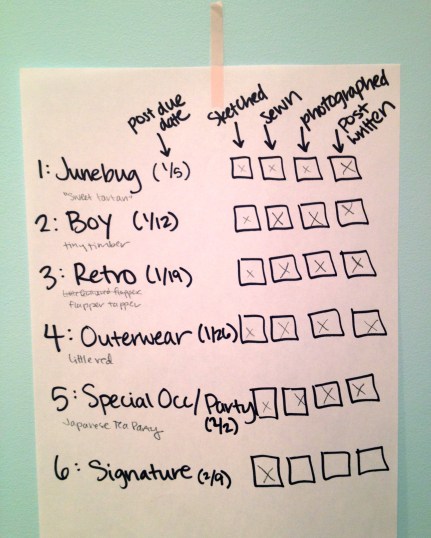 post due date
sketched
sewn
photographed
post written
1: Junebug (1/5)
"sweet tartan"
2: Boy (1/12)
tiny timber
3: Retro (1/19)
flapper
flapper topper
4: Outerwear (1/26)
little red
5: Special Occ/Party (2/2)
Japanese Tea Party
6: Signature (2/9)